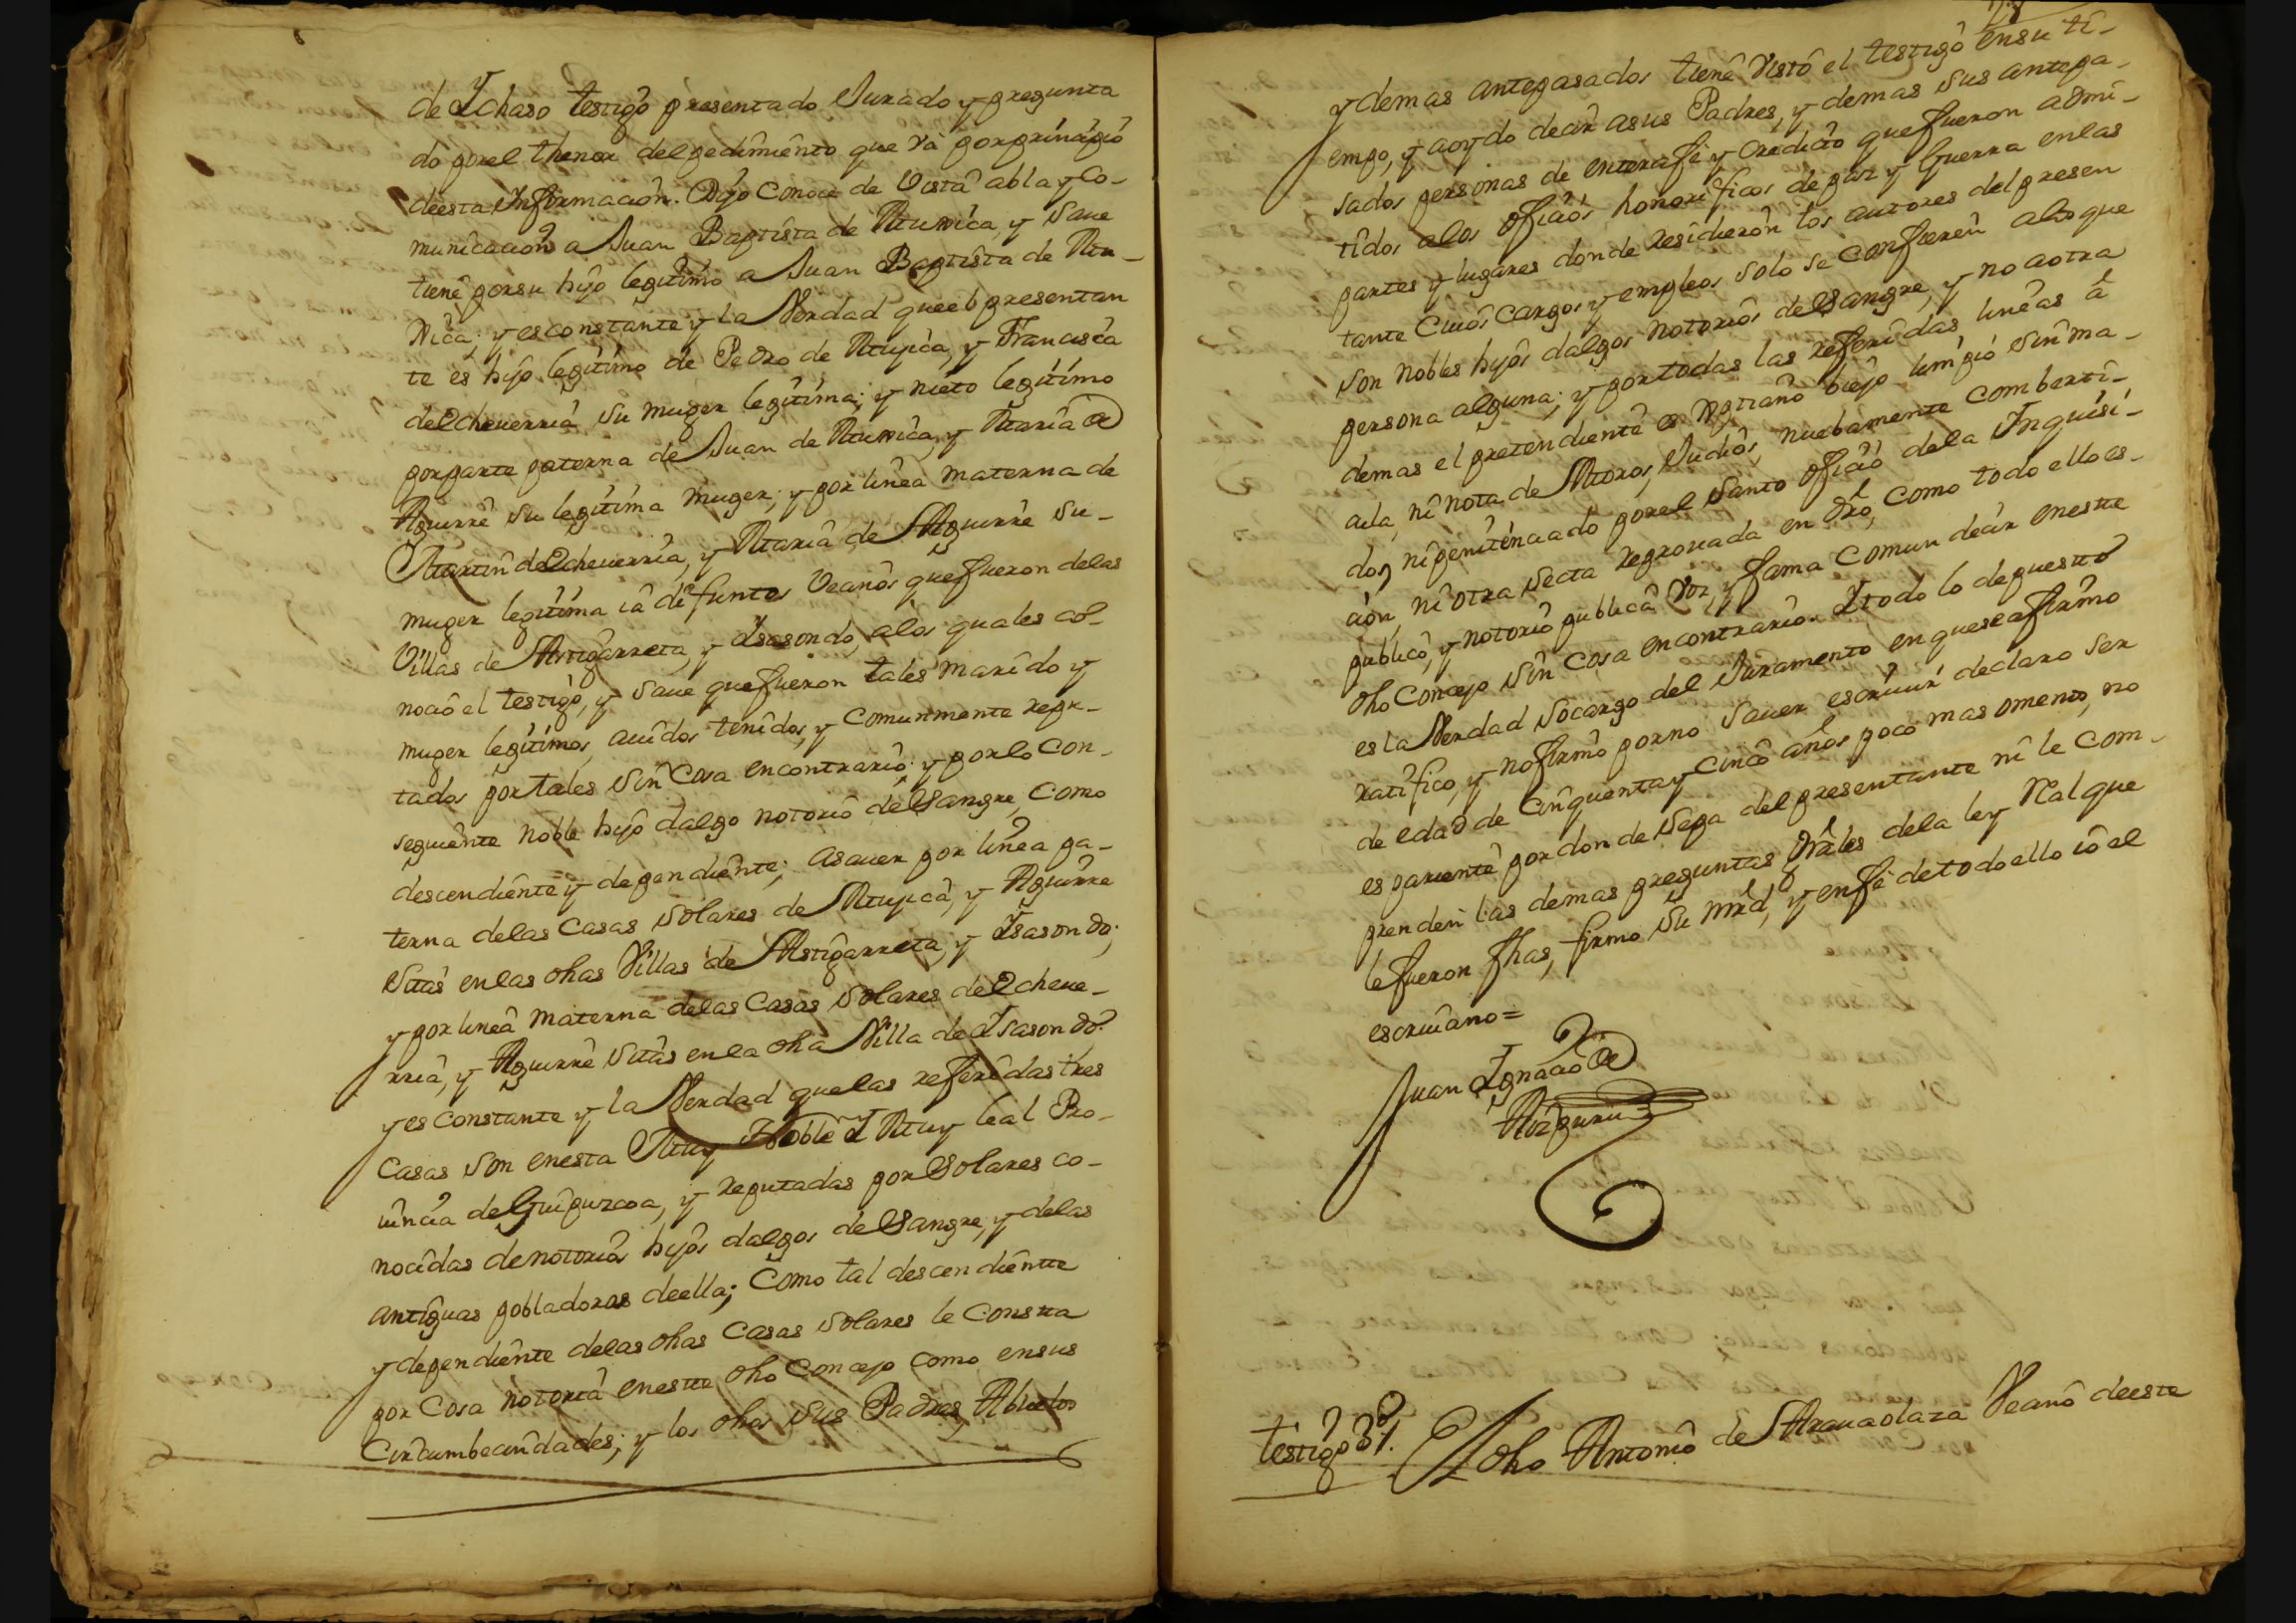 de Ychaso testigo presentado Jurado y pregunta
do por el thenor del pedimiento que và por prinçipio
de esta Informacion. Dijo Conoce de Vista abla y Co-
municacion a Juan Baptista de Muxica, y save
tiene por su hijo legitimo a Juan Baptista de Mu-
xica; y es constante y la Verdad que el presentan
te es hijo legitimo de Pedro de Mujica, y Francisca
de Echeuerria su muger legitima; y nieto legitimo
por parte paterna de Juan de Muxica, y Maria de
Aguirre su legitima muger; y por linea materna de
Martin de Echeuerria, y Maria de Aguirre su-
muger legitima ia difuntos Vecinos que fueron de las
Villas de Astigarreta, y Isasondo, a los quales co-
nocio el testigo, y saue que fueron tales marido y
muger legitimos, auidos tenidos, y comunmente repu-
tados por tales sin Cosa en contrario; y por lo con-
seguiente noble hijo dalgo notorio de Sangre, como
descendiente y dependiente; asauer por linea pa-
terna de las Casas Solares de Mujica, y Aguirre
Sitas en las dhas Villas de Astigarreta, y Isasondo;
y por linea materna de las Casas Solares de Echeue-
rria, y Aguirre Sitas en la dha Villa de Isasondo.
y es constante y la Verdad que las referidas tres
Casas son en esta Muy Noble Y Muy leal Pro-
uincia de Guipuzcoa, y reputadas por Solares co-
nocidas de notorios hijos dalgos de Sangre, y de las
antiguas pobladoras de ella; Como tal descendiente
y dependiente de las dhas Casas Solares le Consta
por Cosa notoria en este dho Concejo como en sus
Circumbecindades; y los dhos sus Padres, Abuelos
y demas antepasados tiene Visto el testigo en su ti-
empo, y a oydo decir a sus Padres, y demas sus antepa-
sados personas de entera fe y credito que fueron admi-
tidos a los oficios honorificos de paz y Guerra en las
partes y lugares donde residieron los autores del presen
tante Cuios Cargos y empleos solo se confieren a los que
son nobles hijos dalgos notorios de Sangre, y no a otra
persona alguna; y por todas las referidas lineas a
demas el pretendiente es Xptiano biejo limpio sin ma-
cula, ni nota de Moros, Judios, nuebamente comberti-
dos, ni penitenciado por el Santo oficio de la Inquisi-
cion, ni otra Secta reprouada en dro, como todo ello es-
publico, y notorio publica Voz, y fama Comun decir en este
dho Concejo sin cosa en contrario. Y todo lo depuesto
es la Verdad so cargo del Juramento en que se afirmo
ratifico, y no firmo por no Sauer escriuir declaro ser
de edad de cinquenta y cinco años poco mas o menos, no
es pariente por donde Sepa del presentante ni le Com-
prenden las demas preguntas Grâles de la ley Real que
le fueron fhas, firmo Su mrd, y en fe de todo ello io el
escriuano =
Juan Ignacio de
Aizpuru
testigo 3º.
El dho Antonio de Arauaolaza Vecino de este